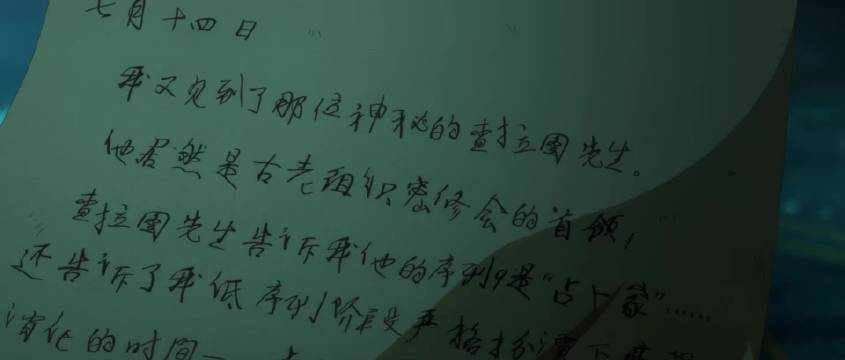 七月十四日
我又见到了那位神秘的查拉图先生。
他居然是古老组织密修会的首领，
查拉图先生告诉我他的序列9是“占卜家”……
还告诉了我低序列阶段严格按
消化的时间一